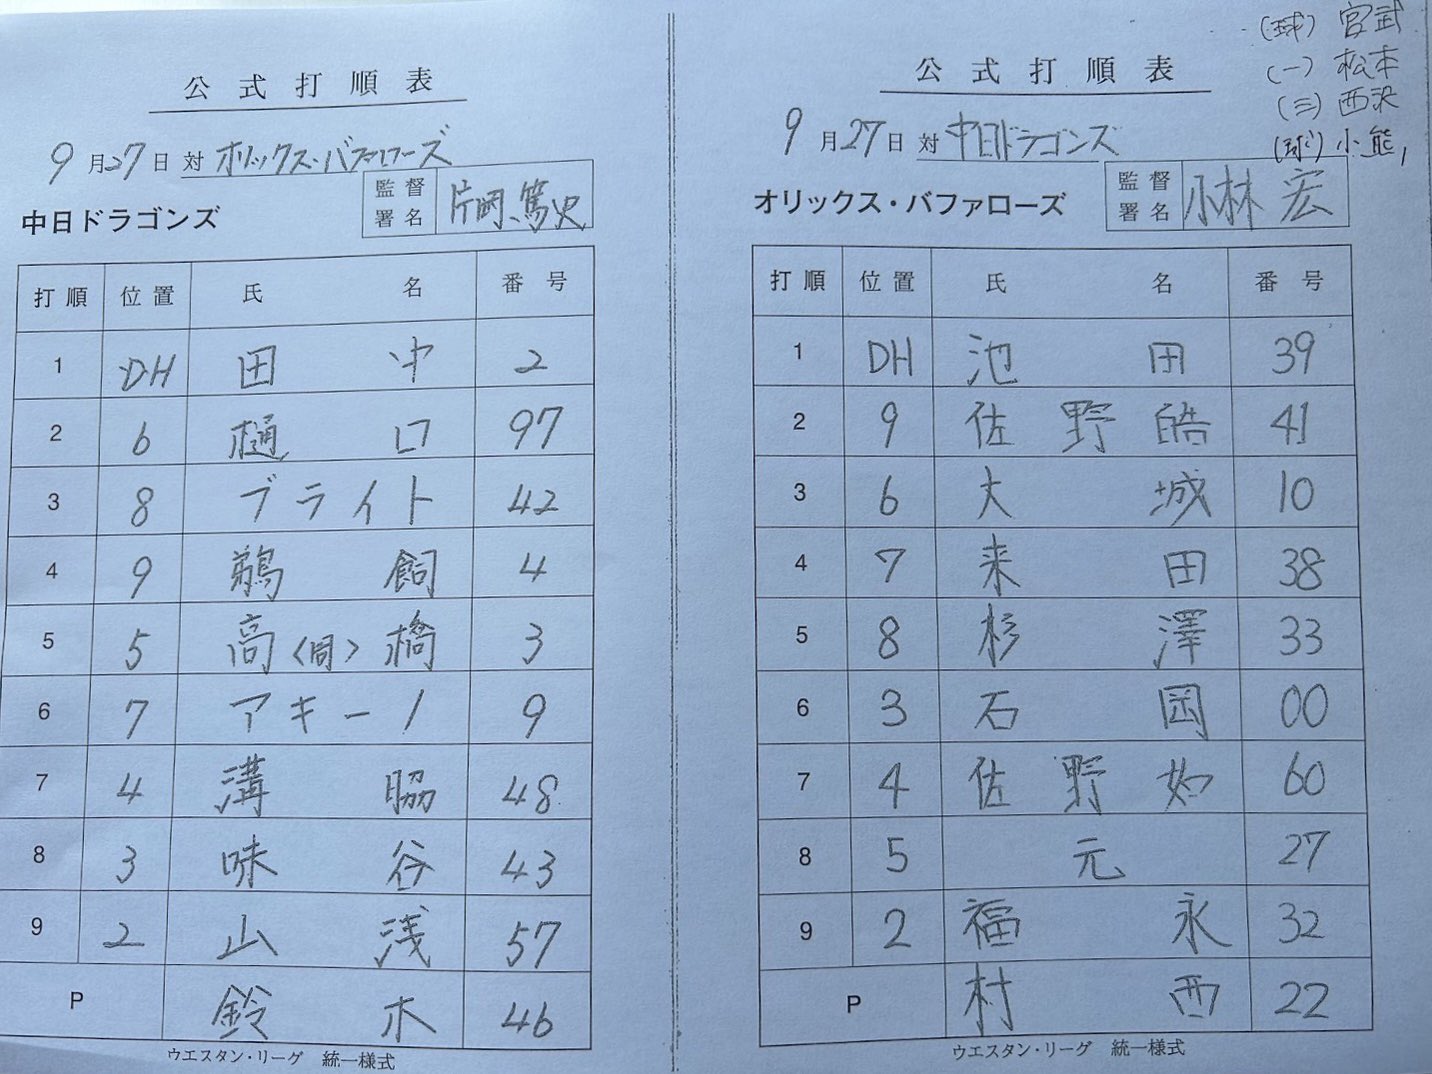 公式打順表
9月27日 対 オリックス・バファローズ
中日ドラゴンズ
監督署名 片岡篤史
打順 位置 氏名 番号
1 DH 田中 2
2 6 樋口 97
3 8 ブライト 42
4 9 鵜飼 4
5 5 高〈周〉橋 3
6 7 アキーノ 9
7 4 溝脇 48
8 3 味谷 43
9 2 山浅 57
P 鈴木 46
ウエスタン・リーグ 統一様式
(球) 宮武
(一) 松本
(三) 西沢
(球) 小熊
公式打順表
9月27日 対 中日ドラゴンズ
オリックス・バファローズ
監督署名 小林宏
打順 位置 氏名 番号
1 DH 池田 39
2 9 佐野皓 41
3 6 大城 10
4 7 来田 38
5 8 杉澤 33
6 3 石岡 00
7 4 佐野如 60
8 5 元 27
9 2 福永 32
P 村西 22
ウエスタン・リーグ 統一様式